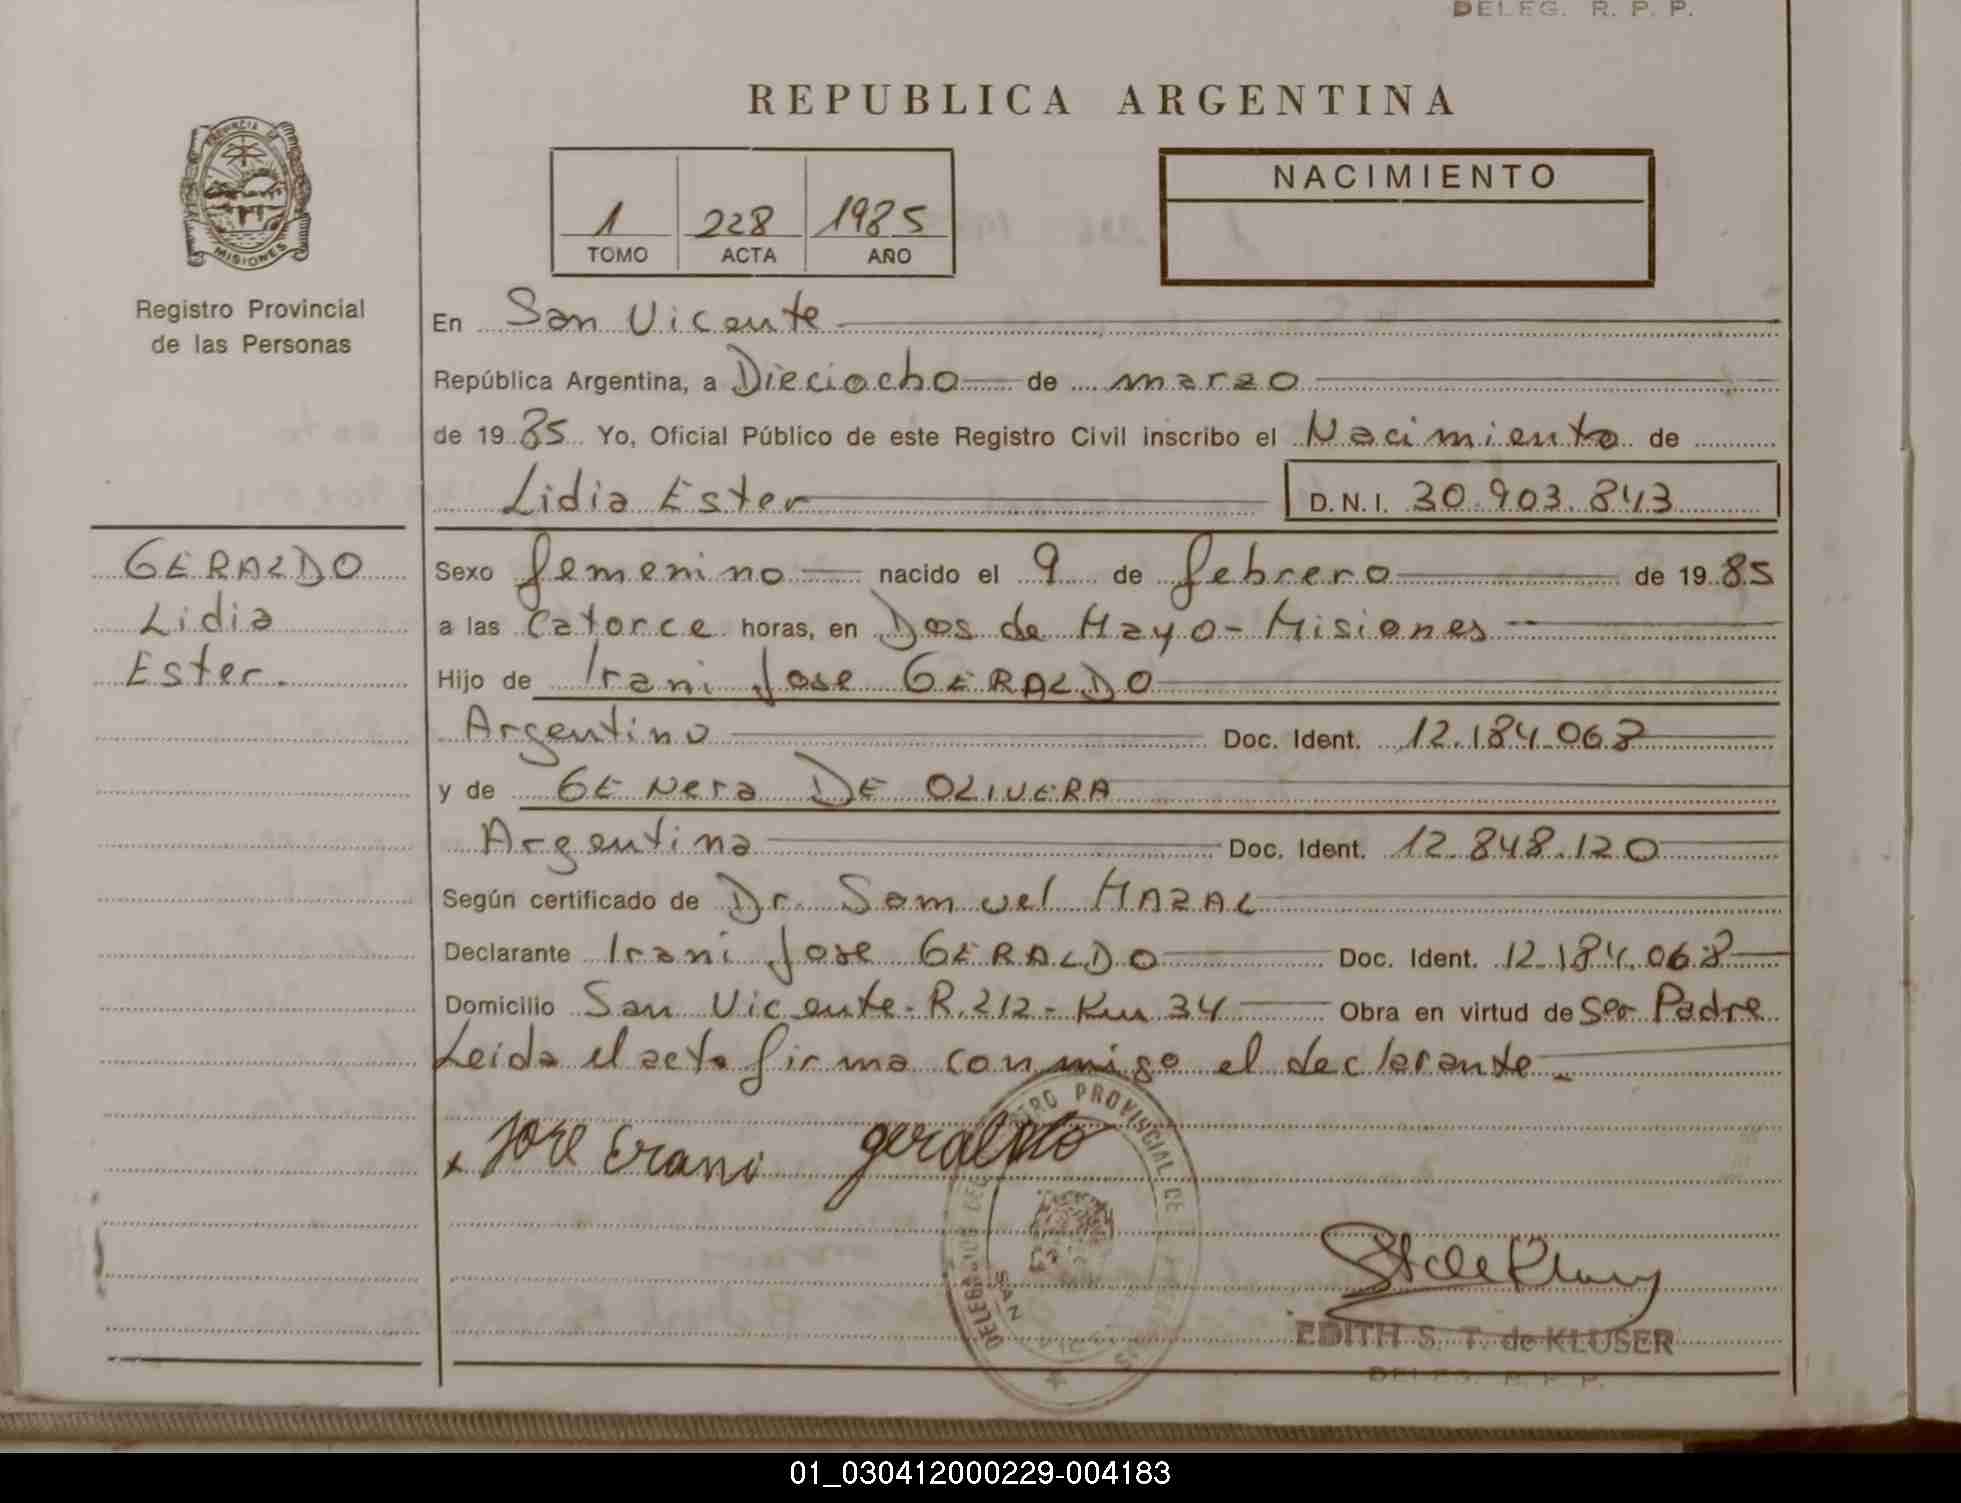 DELEG. R. P. P.
REPUBLICA ARGENTINA
PROVINCIA DE
MISIONES
Registro Provincial
de las Personas
1 228 1985
TOMO ACTA AÑO
NACIMIENTO
En San Vicente
República Argentina, a Dieciocho de marzo
de 1985 Yo, Oficial Público de este Registro Civil inscribo el Nacimiento de
Lidia Ester D.N.I. 30.903.843
GERALDO
Lidia
Ester.
Sexo femenino nacido el 9 de febrero de 1985
a las Catorce horas, en Dos de Mayo - Misiones
Hijo de Irani Jose GERALDO
Argentino Doc. Ident. 12.184.068
y de GENera DE OLIVERA
Argentina Doc. Ident. 12.848.120
Según certificado de Dr. Samuel MAZAL
Declarante Irani Jose GERALDO Doc. Ident. 12.184.068
Domicilio San Vicente - R.212 - Km 34 Obra en virtud de Ser Padre
Leida el acta firma conmigo el declarante.
x Jose Erani geraldo
PROVINCIAL DE
SAN
EDITH S. T. de KLUSER
DELEG. R. P. P.
01_030412000229-004183